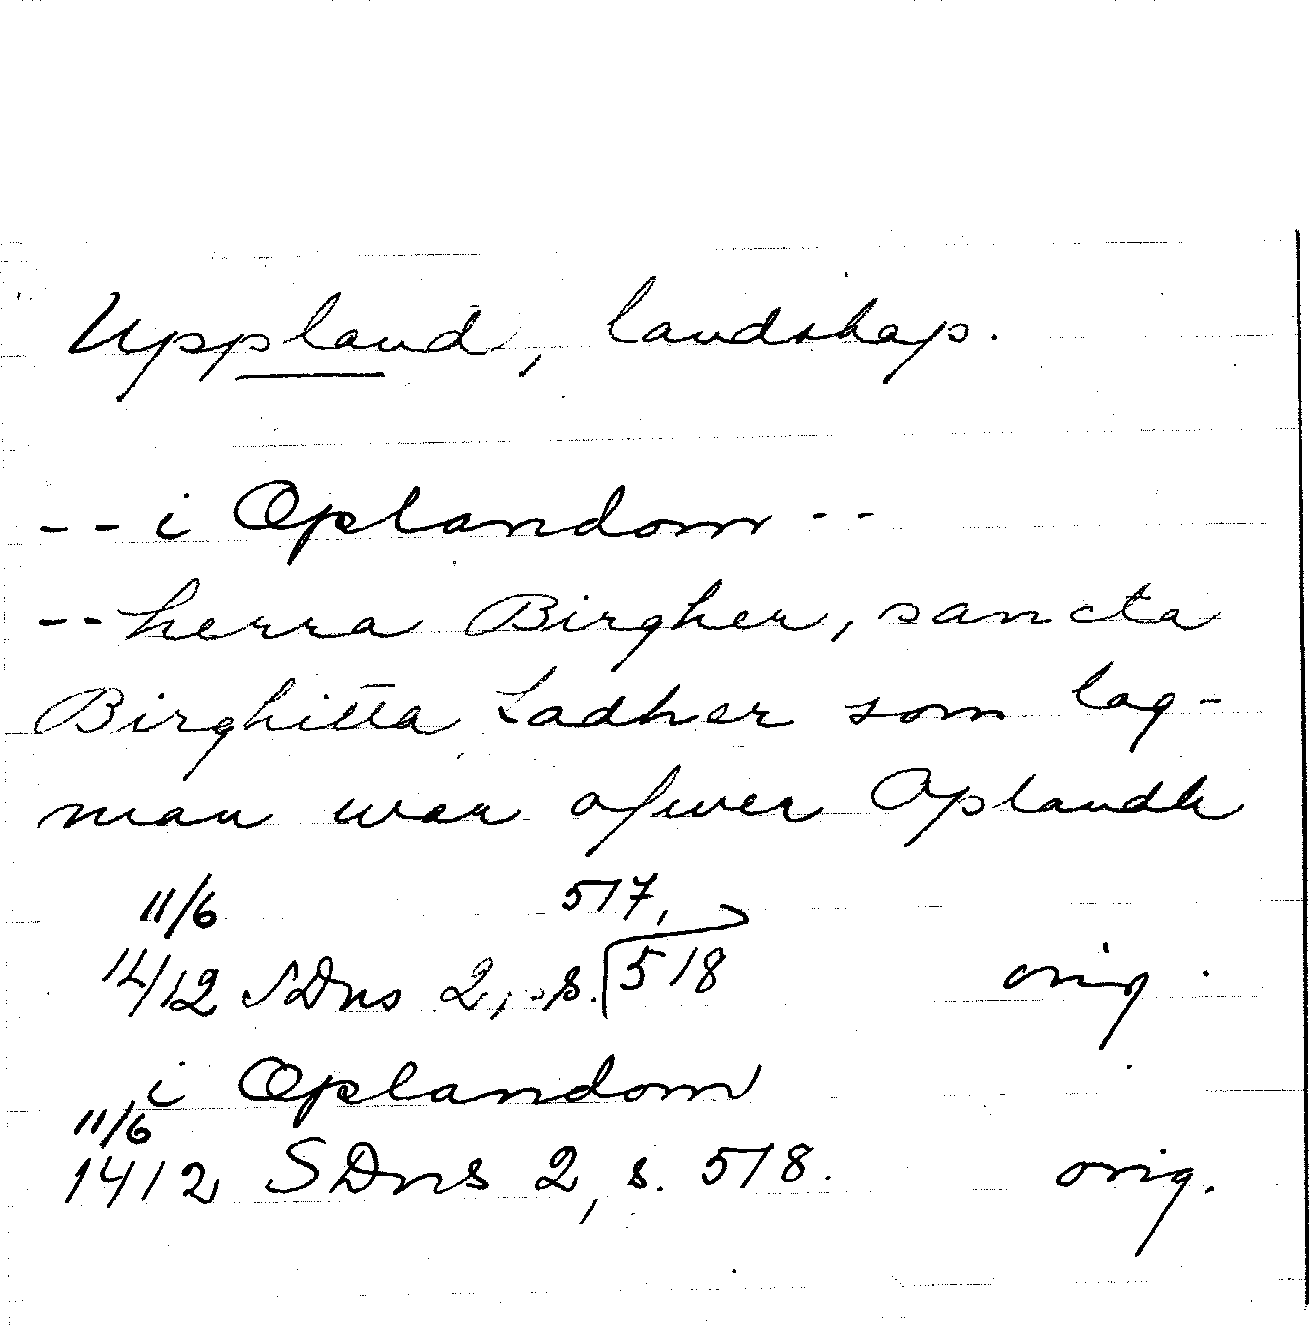 Uppland, landskap.
-- i Oplandom --
-- herra Birgher, sancta
Birghitta fadher som lag-
man war ofwer Oplandh
11/6 517,
1412 SDns 2, s. 518 orig.
i Oplandom
11/6
1412 SDns 2, s. 518. orig.